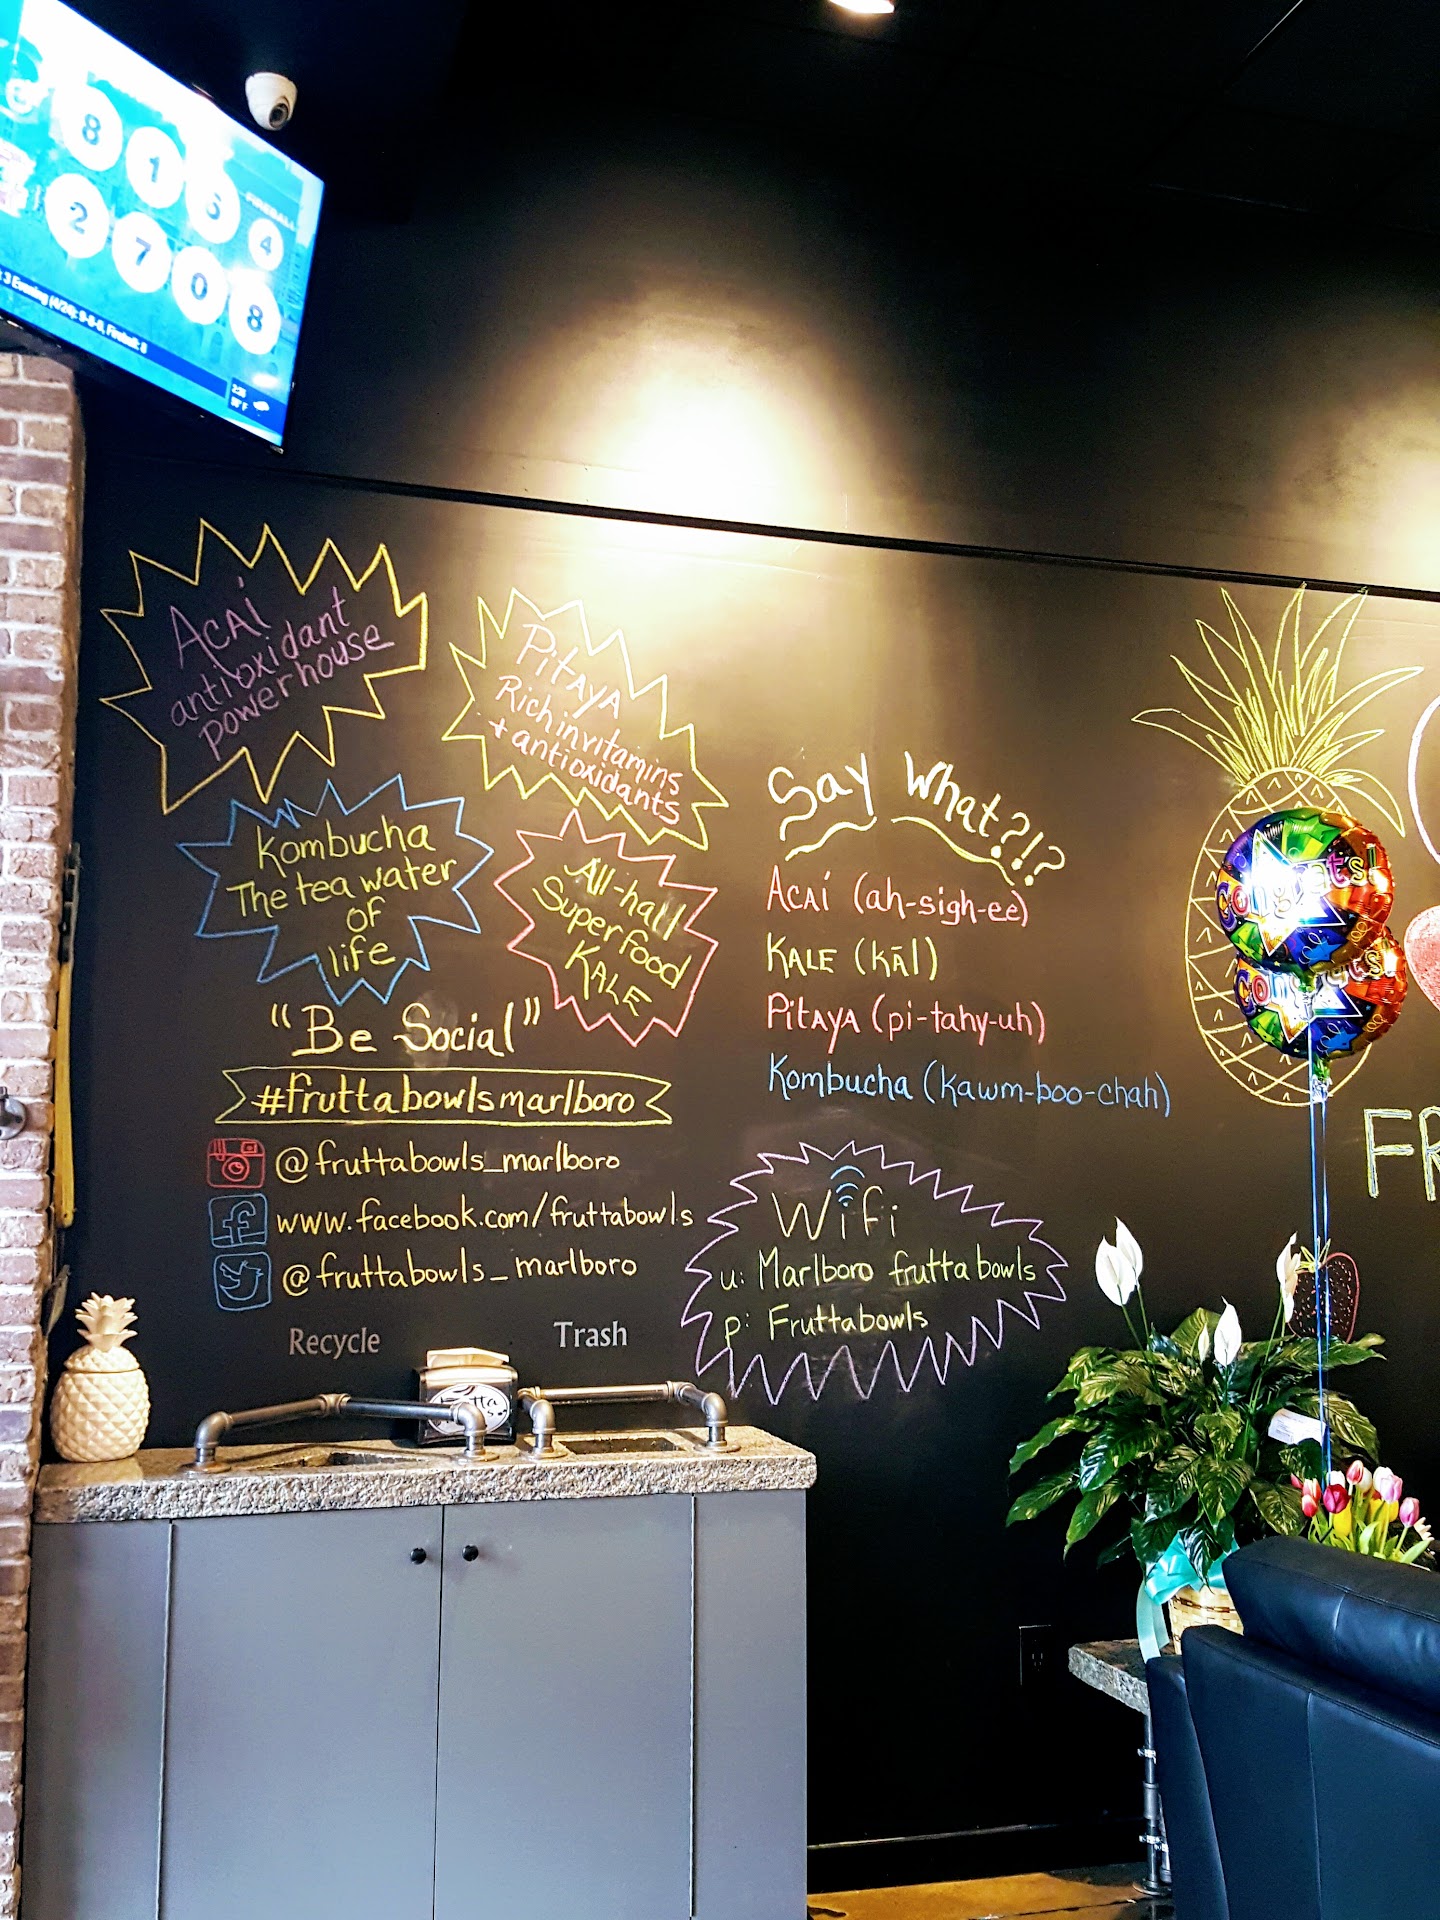 8 1 5 4
FIREBALL
2 7 0 8
3 Evening (4/24): 9-8-8, Fireball: 8
Acaí
antioxidant
powerhouse
Pitaya
Rich in vitamins
+ antioxidants
Kombucha
The tea water
of
life
All-hail
Superfood
Kale
Say What?!?
Acaí (ah-sigh-ee)
Kale (kāl)
Pitaya (pi-tahy-uh)
Kombucha (kawm-boo-chah)
"Be Social"
#fruttabowlsmarlboro
@fruttabowls_marlboro
f www.facebook.com/fruttabowls
@fruttabowls_marlboro
Wifi
u: Marlboro fruttabowls
p: Fruttabowls
Recycle
Trash
Congrats!
Congrats!
FR